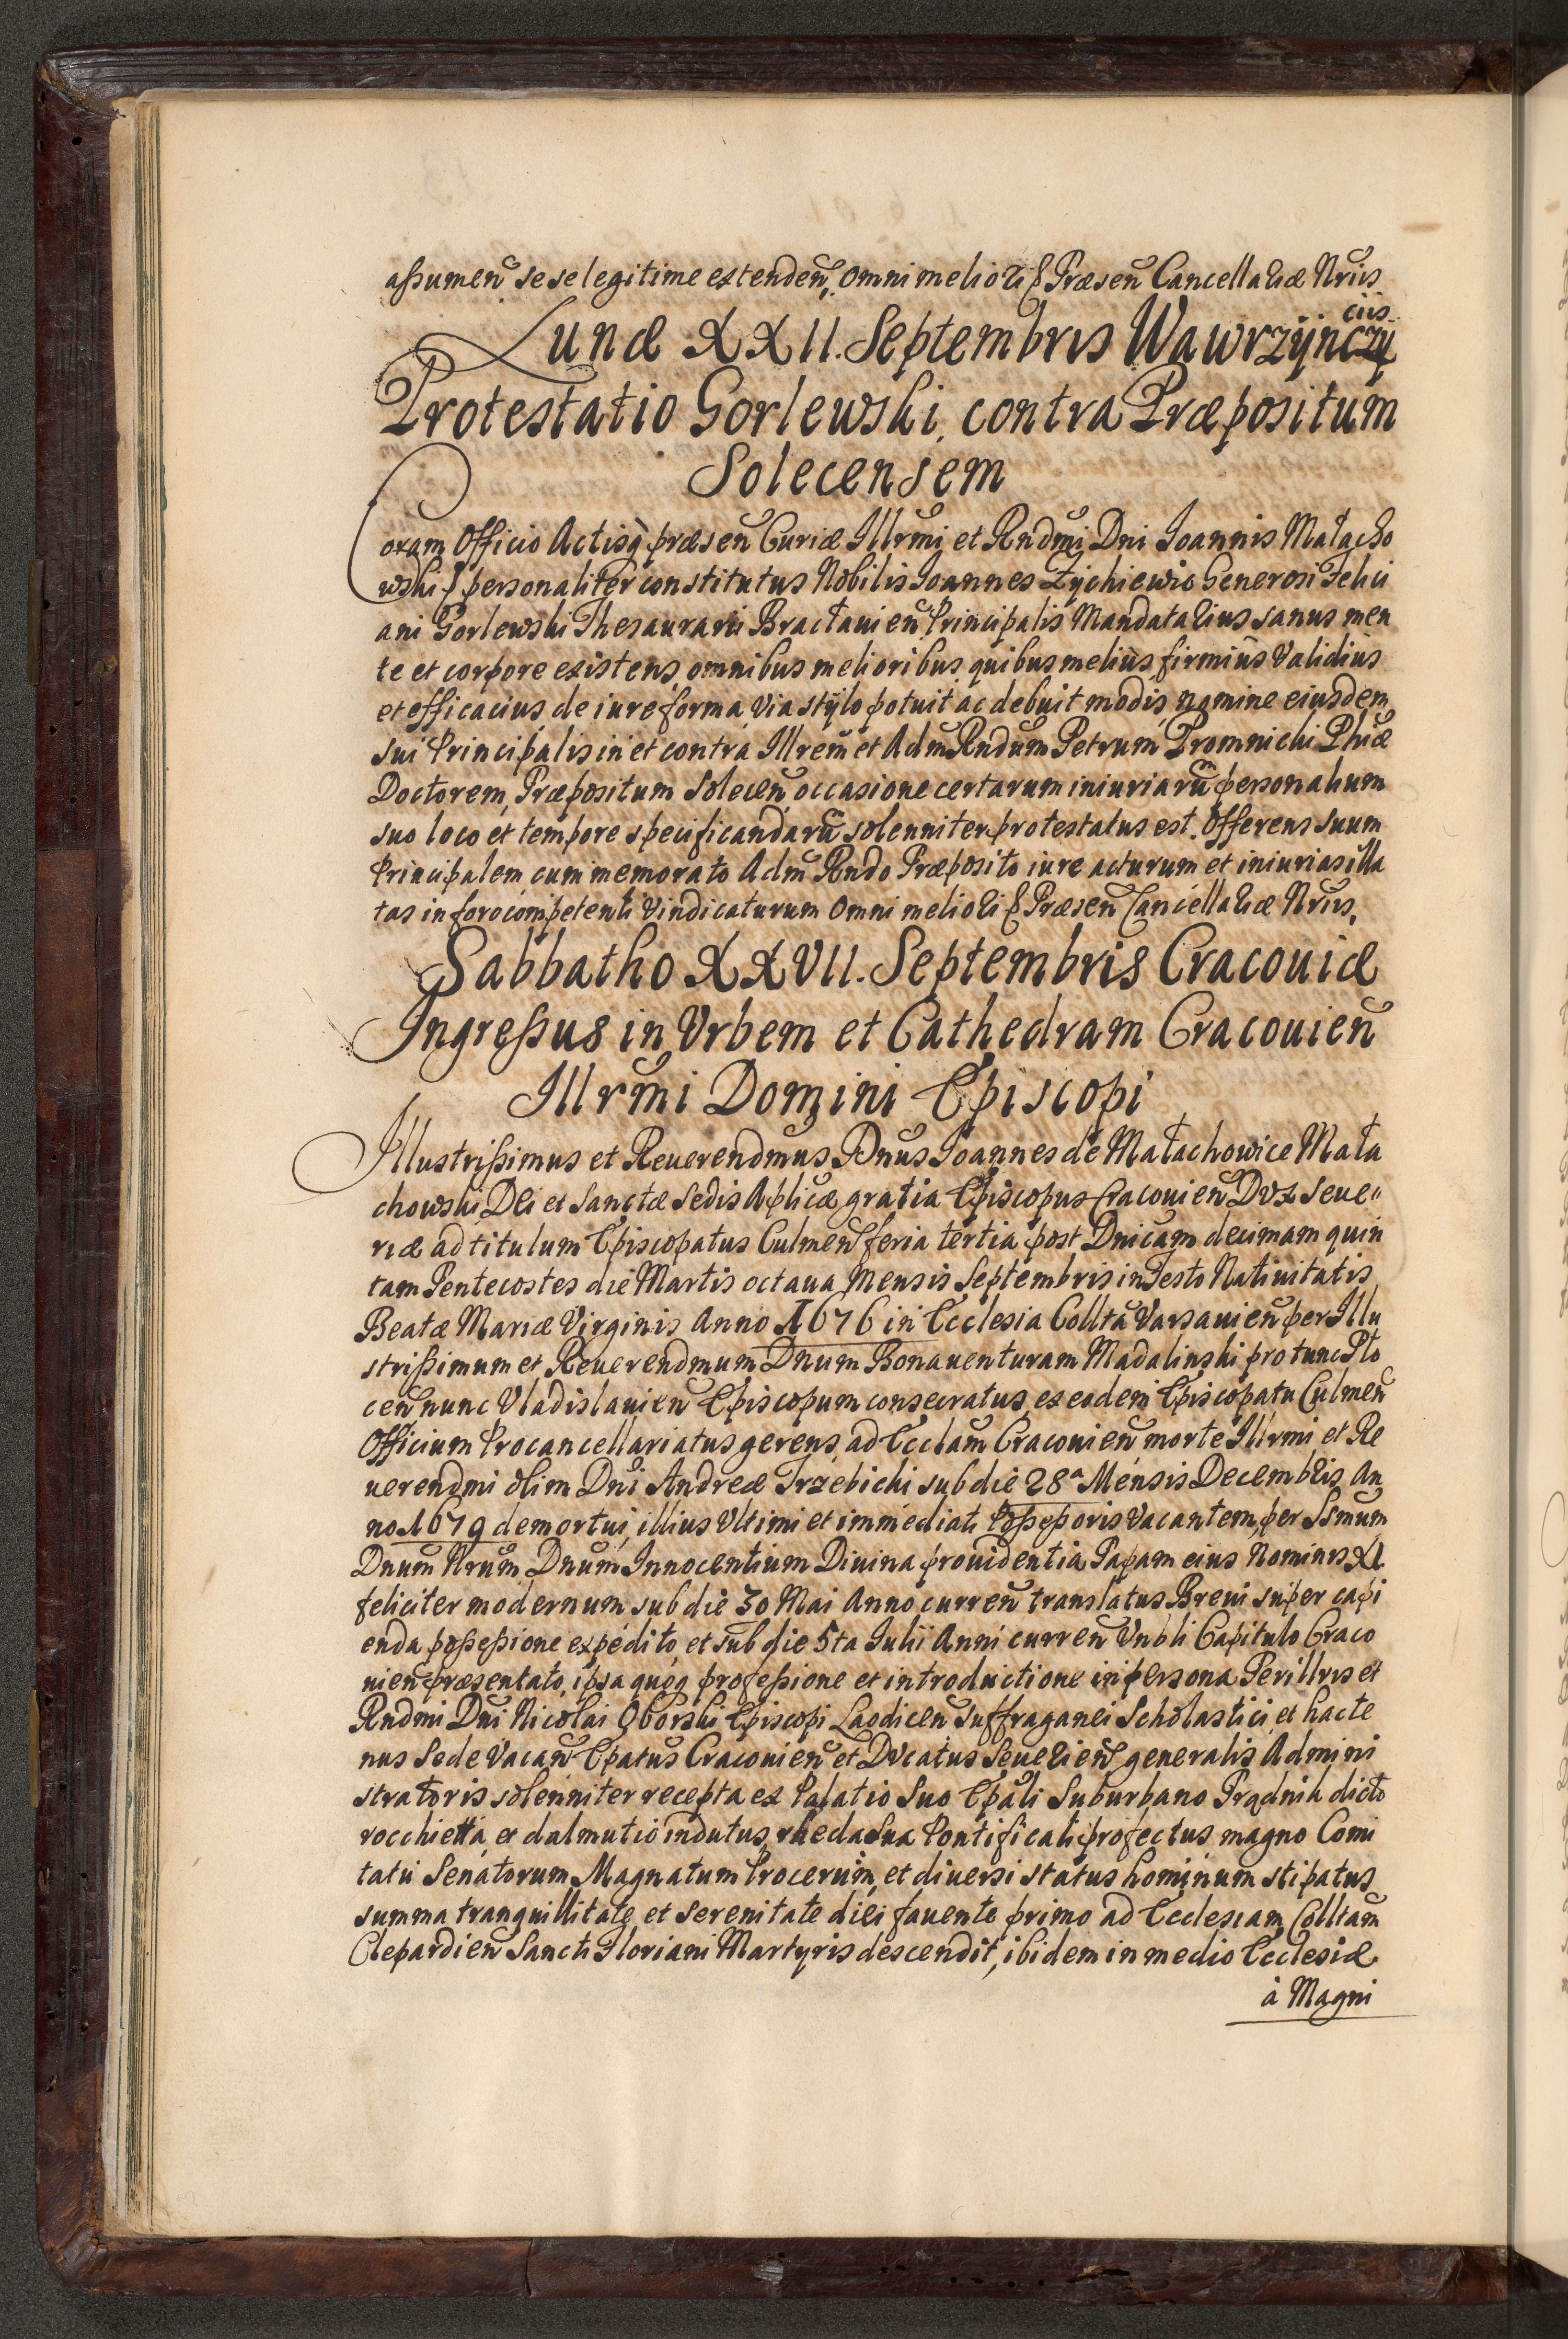 aßumen̄ sese legitime extenden̄, Omni meliori & Præsen̄ Cancellariæ Nr̄iis
Lunæ XXII. Septembris Wawrzÿnczÿ
ciis
Protestatio Gorlewski, contra Præpositum
Solecensem
Coram Officio Actisq̀ præsen̄ Curiæ Illrm̄i et Rndm̄i Dni Joannis Małacho
wski & personaliter constitutus Nobilis Joannes Zÿchiewic Generosi Felici
ani Gorlewski Thesaurarii Bracłauien̄ Principalis Mandatarius sanus men
te et corpore existens, omnibus melioribus quibus meliùs firmiùs validiùs
et efficaciùs de iure forma, via stÿlo potuit ac debuit modis, nomine eiusdem
sui Principalis in et contra Illrem̄ et Adm̄ Rndum̄ Petrum Promnicki Phiæ
Doctorem, Præpositum Solecen̄ occasione certarum iniuriarū personalium
suo loco et tempore specificandarū solenniter protestatus est. Offerens suum
Principalem cum memorato Adm̄ Rndo Præposito iure acturum et iniurias illa
tas in foro competenti vindicaturum Omni meliori & Præsen̄ Cancellariæ Nr̄iis,
Sabbatho XXVII. Septembris Cracouiæ
Ingreßus in Vrbem et Cathedram Cracouien̄
Illrm̄i Domini Episcopi
Illustrißimus et Reuerendmus Dnus Joannes de Małachowice Mała
chowski Dei et Sanctæ Sedis Aplicæ gratia Episcopus Cracouien̄ Dux Seue„
riæ ad titulum Episcopatus Culmen̄ feria tertia post Dnicam decimam quin
tam Pentecostes die Martis octaua Mensis Septembris in Festo Natiuitatis
Beatæ Mariæ Virginis Anno 1676 in Ecclesia Colltā Varsauien̄ per Illu
strißimum et Reuerendmum Dnum Bonauenturam Madalinski pro tunc Plo
cen̄ nunc Vladislauien̄ Episcopum consecratus, ex eodem Episcopatu Culmen̄
Officium Procancellariatus gerens, ad Ecclam̄ Cracouien̄ morte Illrmi et Re
uerendmi olim Dni Andreæ Trzebicki sub die 28ª Mensis Decembris An
no 1679 demortui, illius Vltimi et immediati Poßeßoris Vacantem, per Ssmum̄
Dnum̄ Nrum̄ Dnum̄ Innocentium Diuina prouidentia Papam eius Nominis XI.
feliciter modernum, sub die 30 Mai Anno curren̄ translatus Breui super capi
enda poßeßione expedito, et sub die 5ta Julii Anni curren̄ Vnbli Capitulo Craco
uien̄ præsentato, ipsa quoq̀ profeßione et introductione in persona Perillris et
Rndmi Dni Nicolai Oborski Episcopi Laodicen̄ Suffraganei Scholastici et hacte
nus Sede Vacan̄ Epatus̄ Cracouien̄ et Dvcatus Seuerien̄ generalis Admini
stratoris solenniter recepta ex Palatio Suo Epali Suburbano Prądnik dicto
rocchietta, et dalmutio indutus, rhedaSua Pontificali profectus, magno Comi
tatu Senatorum, Magnatum Procerum, et diuersi status hominum stipatus
summa tranquillitate, et serenitate diei fauente primo ad Ecclesiam Colltam̄
Clepardien̄ Sancti Floriani Martyris descendit, ibidem in medio Ecclesiæ
à Magni